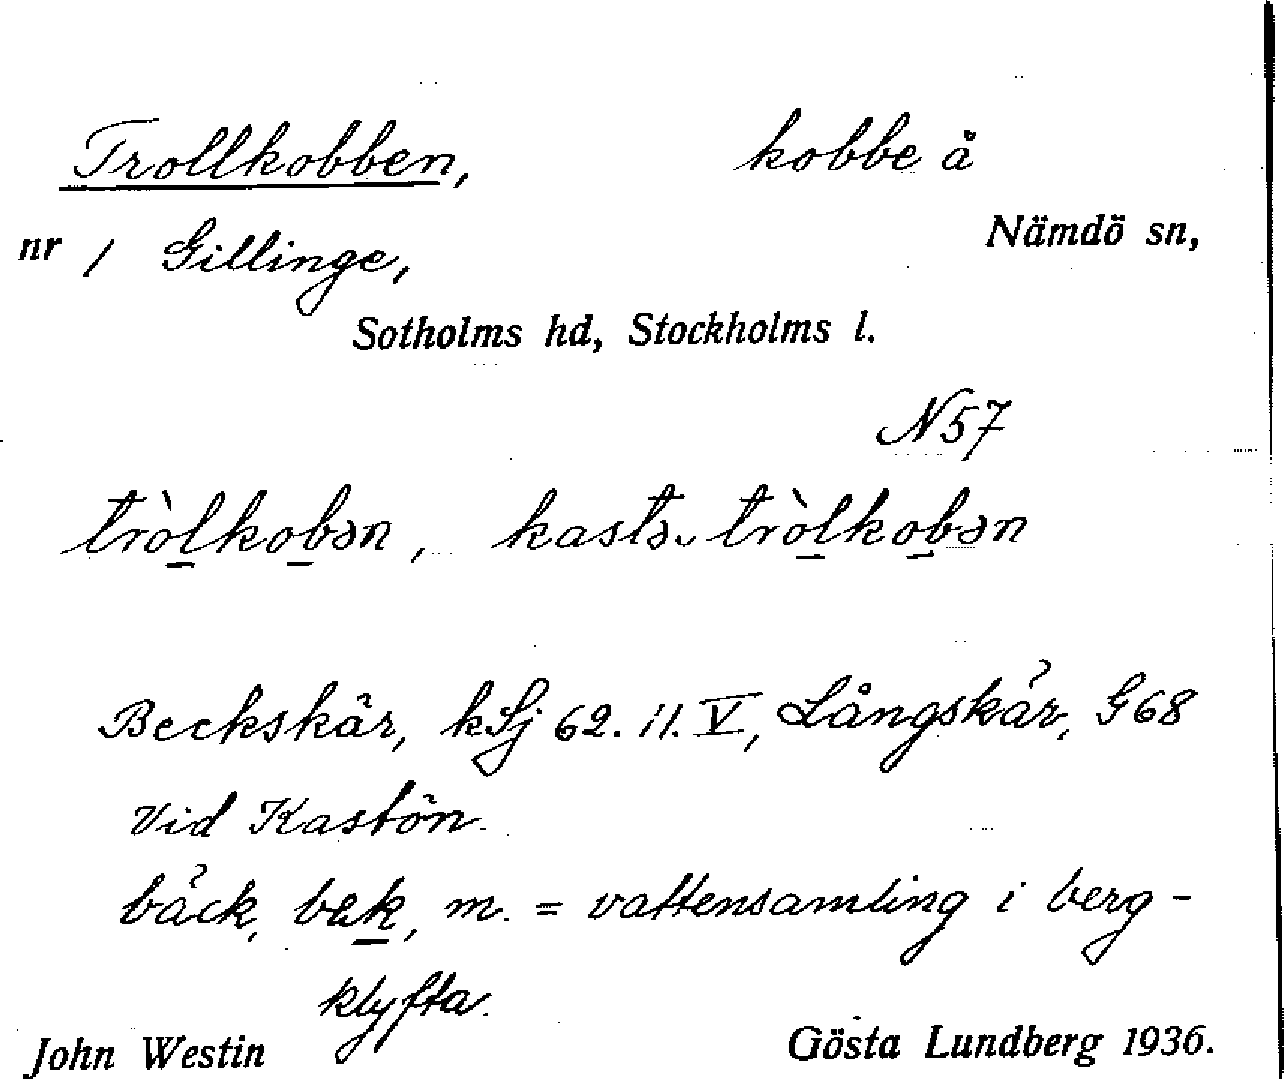 Trollkobben, kobbe å
nr 1 Gillinge, Nämdö sn,
Sotholms hd, Stockholms l.
N57
tròlkobən, kastə tròlkobən
Beckskär, kSj 62. II. V, Långskär, G68
Vid Kastön.
bäck, bäk, m. = vattensamling i berg-
klyfta.
John Westin Gösta Lundberg 1936.